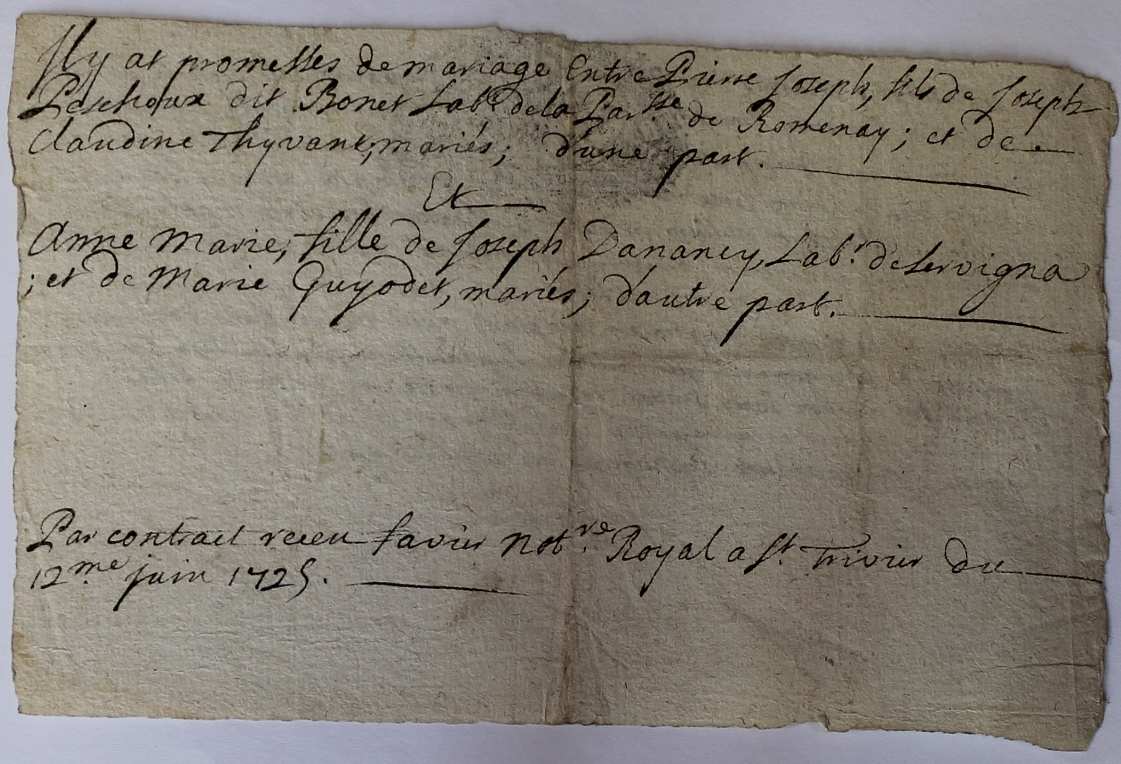 Il y at promesses de mariage Entre Pierre Joseph, fils de Joseph
Peschoux dit Bonet Lab.r de la Par.sse de Romenay; et de
Claudine Thyvant, mariés; d'une part.
Et
Anne Marie, fille de Joseph Dananey, Lab.r de Servigna
; et de Marie Guyodet, mariés; d'autre part.
Par contract receu favier Not.re Royal a St. Trivier du
12.me juin 1725.